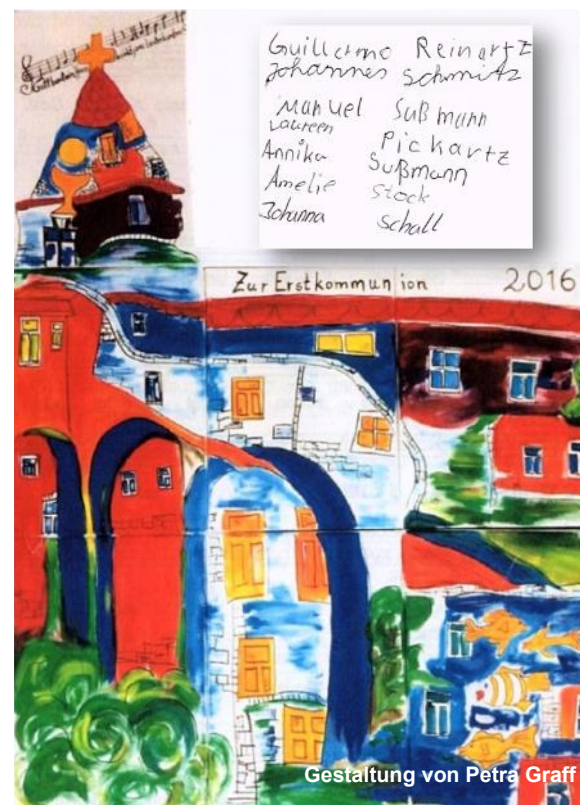 Guillermo Reinartz
Johannes Schmitz
Manuel Sußmann
Laureen Pickartz
Annika Sußmann
Amelie Stock
Johanna Schall
Zur Erstkommunion 2016
Gestaltung von Petra Graff